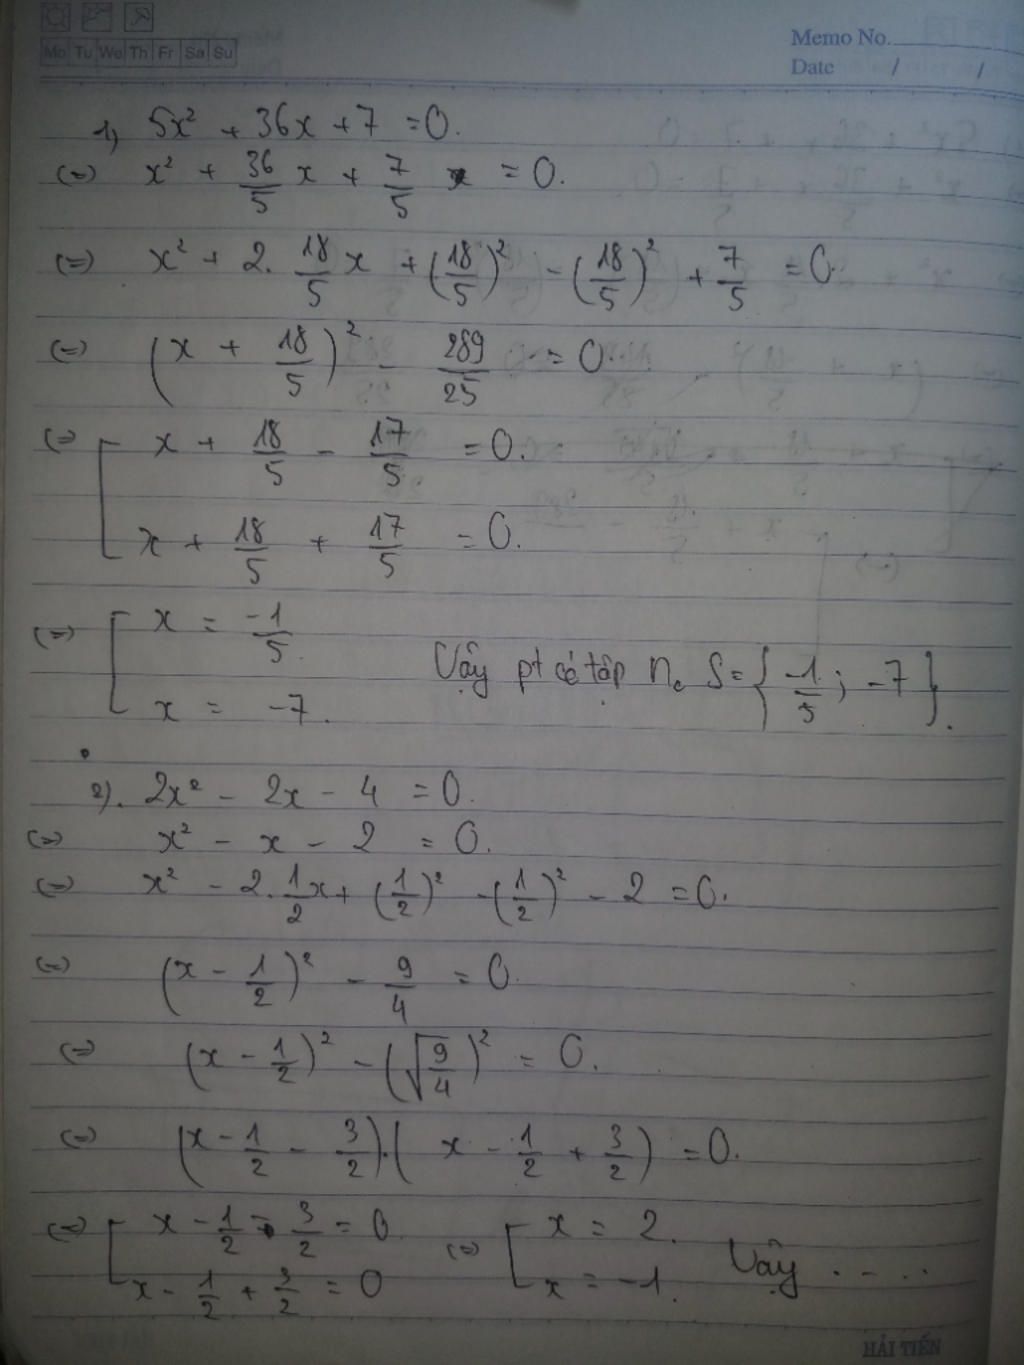 Mo Tu We Th Fr Sa Su
Memo No.
Date / /
1, 5x² + 36x + 7 = 0.
(=) x² + 36/5 x + 7/5 = 0.
(=) x² + 2. 18/5 x + (18/5)² - (18/5)² + 7/5 = 0.
(=) (x + 18/5)² - 289/25 = 0.
(=) [ x + 18/5 - 17/5 = 0.
x + 18/5 + 17/5 = 0.
(=) [ x = -1/5
x = -7.
Vậy pt có tập n₀ S = { -1/5 ; -7 }.
2). 2x² - 2x - 4 = 0.
(=) x² - x - 2 = 0.
(=) x² - 2. 1/2 x + (1/2)² - (1/2)² - 2 = 0.
(=) (x - 1/2)² - 9/4 = 0.
(=) (x - 1/2)² - (√9/4)² = 0.
(=) (x - 1/2 - 3/2).( x - 1/2 + 3/2) = 0.
(=) [ x - 1/2 - 3/2 = 0 (=) [ x = 2.
x - 1/2 + 3/2 = 0 x = -1. Vậy ....
HẢI TIẾN